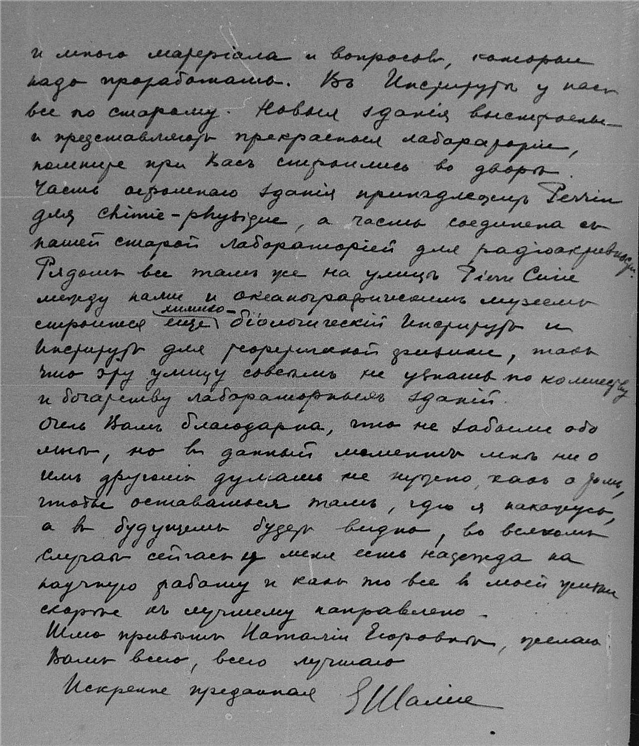 и много матеріала и вопросовъ, которые
надо проработать. Въ Институтѣ у насъ
все по старому. Новыя зданія выстроены
и представляютъ прекрасныя лабораторіи,
помните при Васъ строились во дворѣ.
Часть огромнаго зданія принадлежитъ Perrin
для chimie-physique, а часть соединена съ
нашей старой лабораторіей для радіоактивности.
Рядомъ все тамъ же на улицѣ Pierre Curie
между нами и океанографическимъ музеемъ
строится еще химико-біологическій Институтъ и
Институтъ для теоретической физики, такъ
что эту улицу совсѣмъ не узнать по количеству
и богатству лабораторныхъ зданій.
Очень Вамъ благодарна, что не забыли обо
мнѣ, но въ данный моментъ мнѣ ни о
чемъ другомъ думать не нужно, какъ о томъ,
чтобы оставаться тамъ, гдѣ я нахожусь,
а въ будущемъ будетъ видно, во всякомъ
случаѣ сейчасъ у меня есть надежда на
научную работу и какъ то все въ моей жизни
скорѣе къ лучшему направлено.
Шлю привѣтъ Наталіи Егоровнѣ, желаю
Вамъ всего, всего лучшаго
Искренне преданная ЕШамие